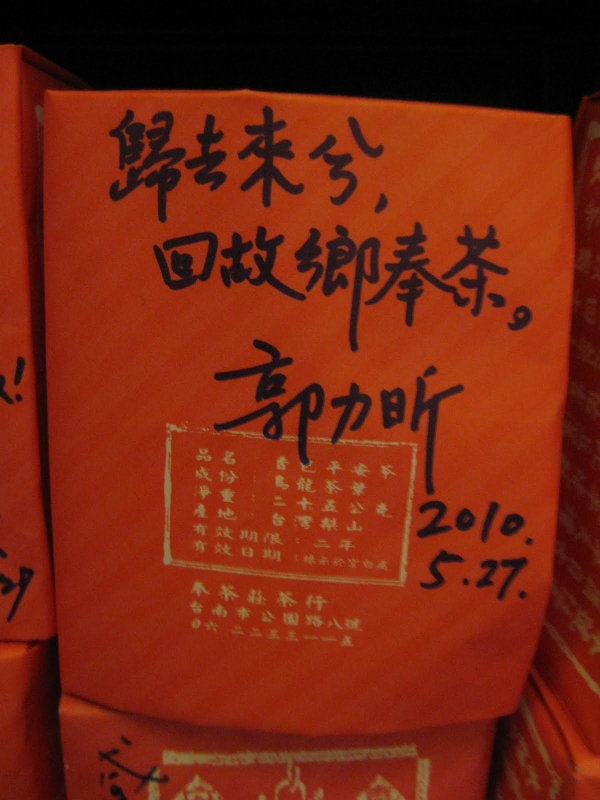 歸去來兮,
回故鄉奉茶。
郭力昕
2010.
5.27.
品名: 平安茶
成份:烏龍茶葉
淨重:二十五公克
產地:台灣梨山
有效期限:二年
有效日期:標示於空白處
奉茶莊茶行
台南市公園路八號